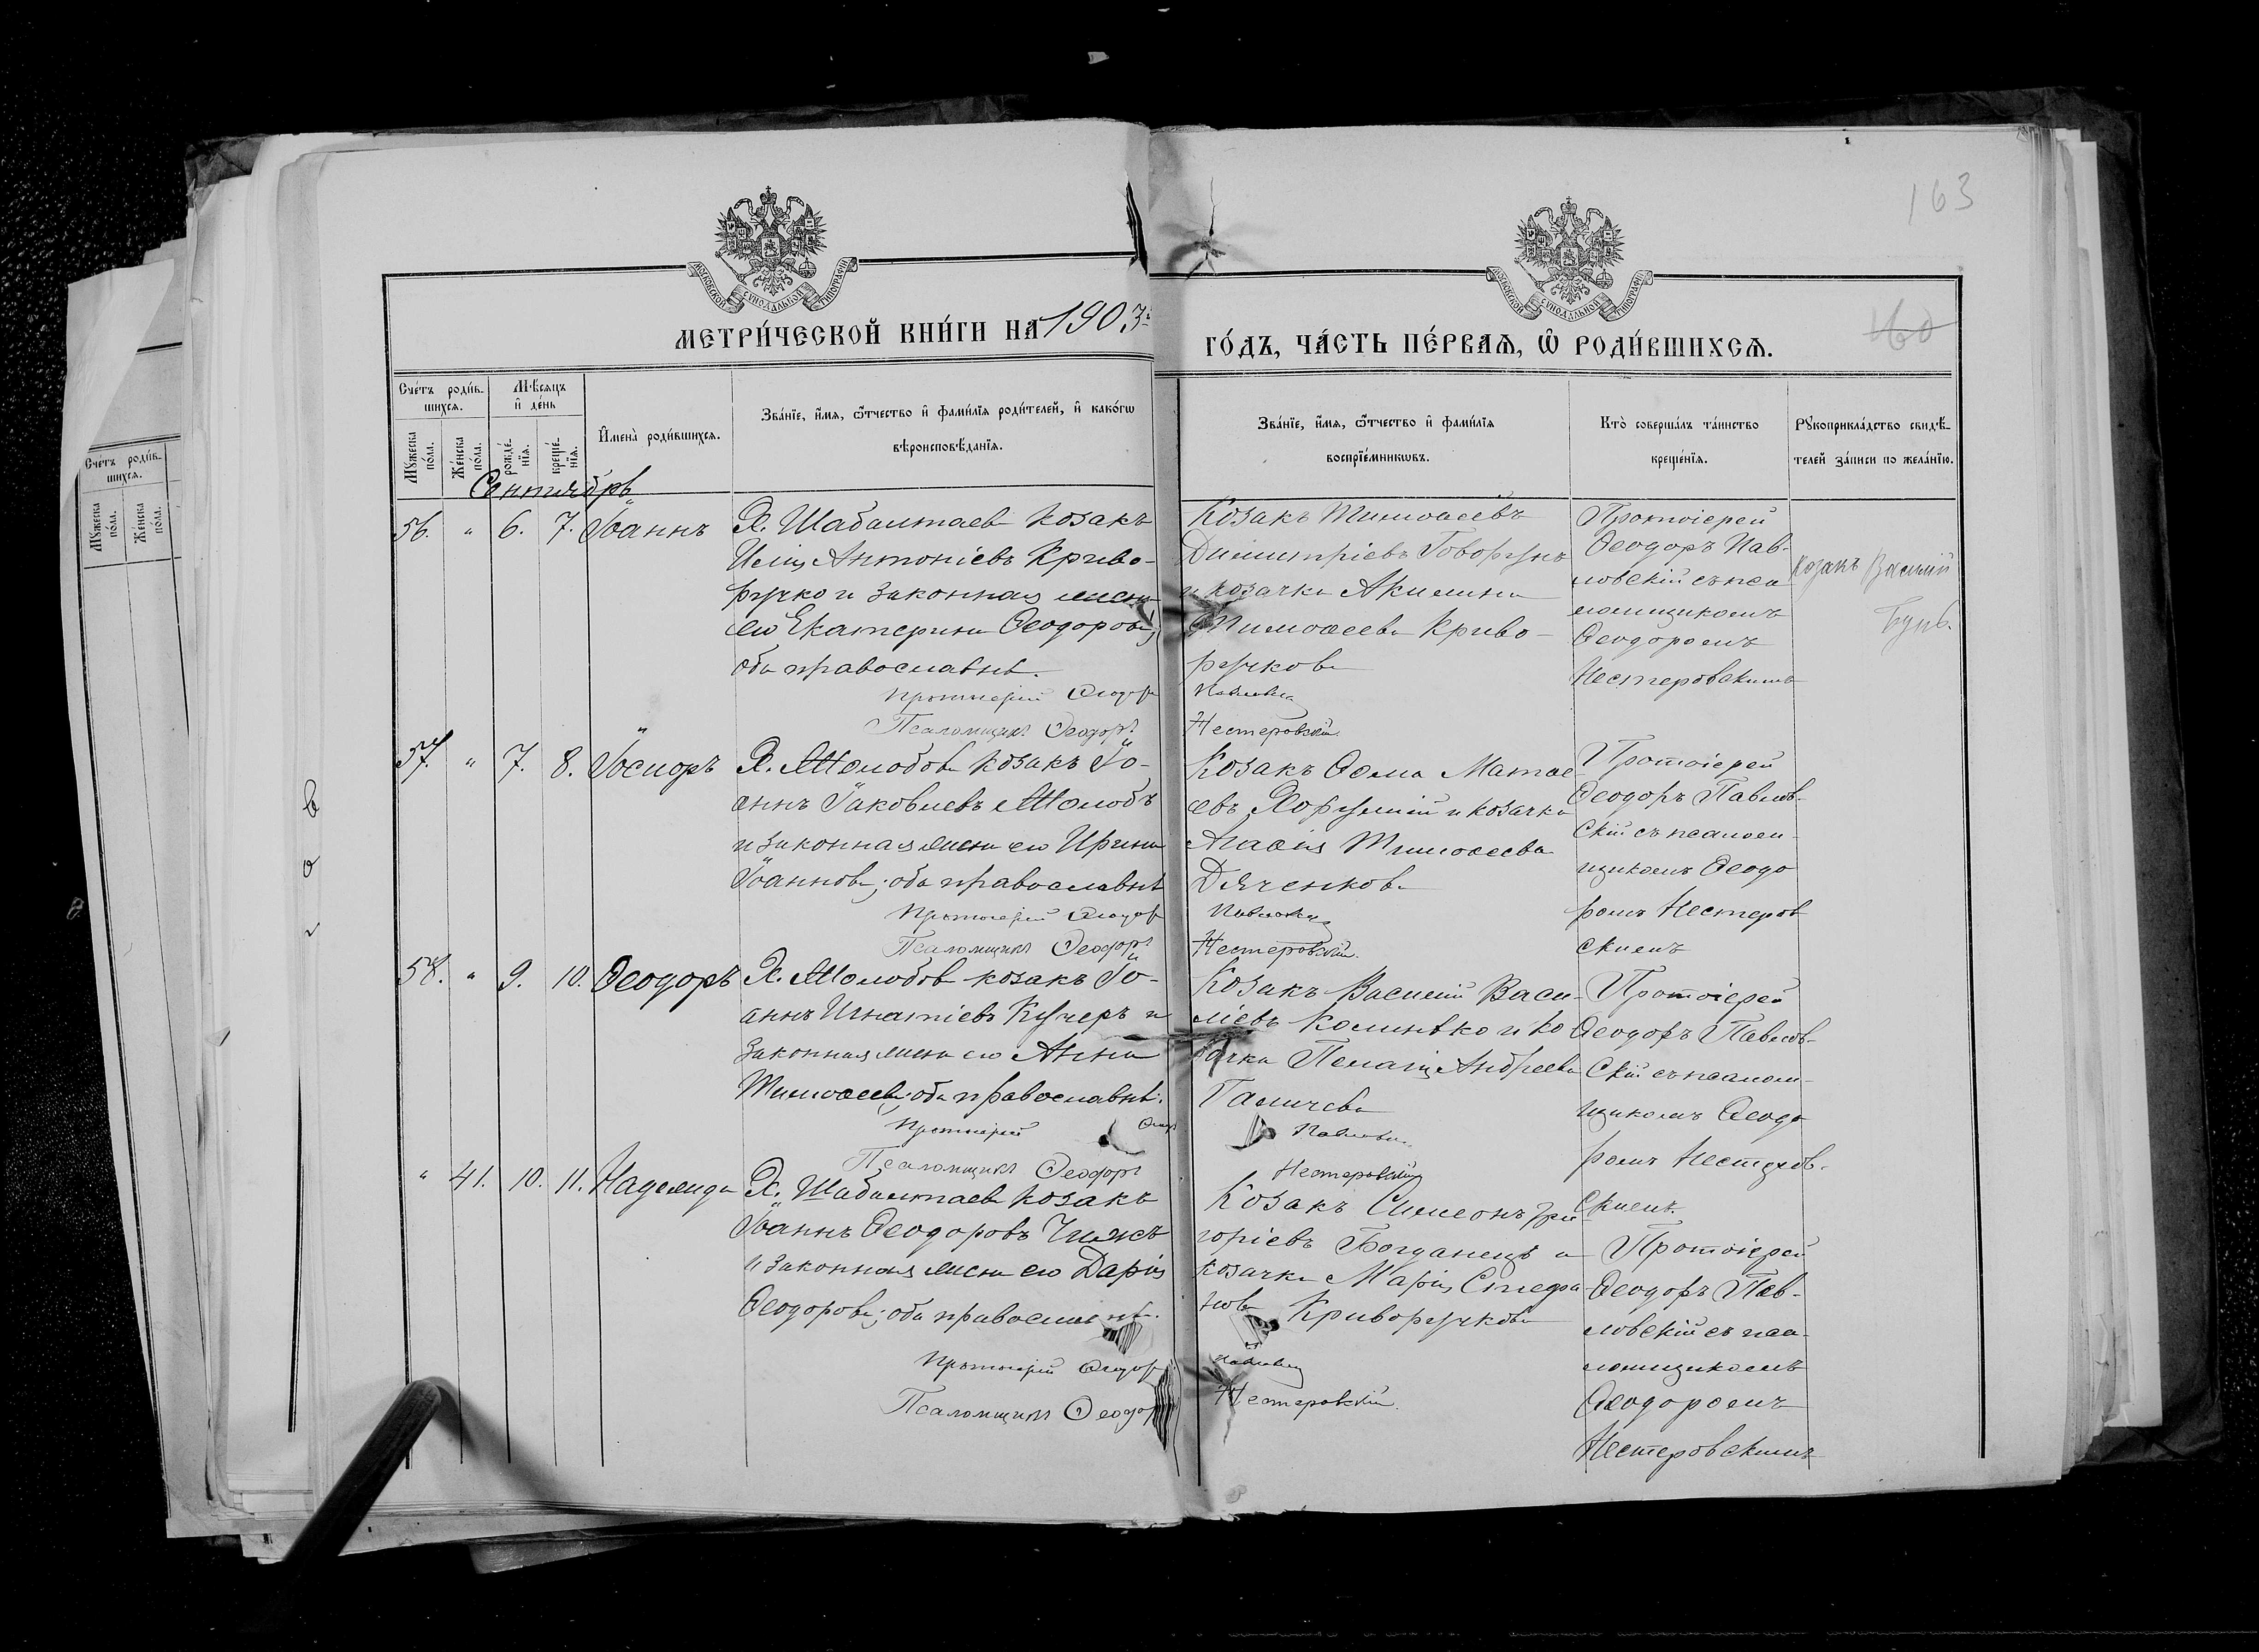 163
160
МОСКОВСКОЙ СѴНОДАЛЬНОЙ ТИПОГРАФІИ
МОСКОВСКОЙ СѴНОДАЛЬНОЙ ТИПОГРАФІИ
МЕТРИ́ЧЕСКОЙ КНИ́ГИ НА 1903й
ГО́ДЪ, ЧА́СТЬ ПЕ́РВАѦ, Ѡ҆ РОДИ́ВШИХСѦ.
Сче́тъ роди́в-
шихсѧ.
Мꙋ́жеска по́ла.
Же́нска по́ла.
Мѣ́сѧцъ
и҆ де́нь
рожде́-нїѧ.
креще́-нїѧ.
И҆мена̀ роди́вшихсѧ.
Зва́нїе, и҆́мѧ, ѻ҆́тчество и҆ фами́лїѧ роди́телей, и҆ како́гѡ
вѣроисповѣ́данїѧ.
Зва́нїе, и҆́мѧ, ѻ҆́тчество и҆ фами́лїѧ
воспрїе́мникѡвъ.
Кто̀ соверша́лъ та́инство
креще́нїѧ.
Рꙋкоприкла́дство свидѣ́-
телей за́писи по жела́нїю.
Сче́тъ роди́в-
шихсѧ.
Мꙋ́жеска по́ла.
Же́нска по́ла.
Сентябрь
56. " 6. 7. Іоаннъ
Х. Шабалтаева козакъ
Илія Антоніевъ Криво-
ручко и законная жена
его Екатерина Ѳеодорова,
оба православные.
Протоіерей Ѳеодоръ
Псаломщикъ Ѳеодоръ
Козакъ Тимоѳей
Димитріевъ Говорунъ
и козачка Акилина
Тимоѳеева Криво-
ручкова
Павловскій
Нестеровскій.
Протоіерей
Ѳеодоръ Пав-
ловскій съ пса
ломщикомъ
Ѳеодоромъ
Нестеровскимъ
Козакъ Василий
57. " 7. 8. Іосифъ
Іо-
аннъ Іаковлевъ
и законная жена его Ирина
Іоаннова; оба православные
Протоіерей Ѳеодоръ
Псаломщикъ Ѳеодоръ
Козакъ Ѳома Матѳе
евъ и козачка
Агафія Тимоѳеева
Дяченкова
Павловскій
Нестеровскій.
Протоіерей
Ѳеодоръ Павлов-
скій съ псалом-
щикомъ Ѳеодо
ромъ Нестеров
скимъ
58. " 9. 10. Ѳеодоръ
козакъ Іо-
аннъ Игнатіевъ Кучеръ и
законная жена его Анна
Тимоѳеева; оба православные.
Протоіерей Ѳеодоръ
Псаломщикъ Ѳеодоръ
Козакъ Василій Васи-
льевъ и ко
зачка Пелагія Андреева
Павловскій
Нестеровскій
Протоіерей
Ѳеодоръ Павлов-
скій съ псалом-
щикомъ Ѳеодо
ромъ Нестеров-
скимъ.
" 41. 10. 11. Надежда
Х. Шабалтаева козакъ
Іоаннъ Ѳеодоровъ Чижъ
и законная жена его Дарія
Ѳеодорова; оба православные.
Протоіерей Ѳеодоръ
Псаломщикъ Ѳеодоръ
Козакъ Симеонъ Гри
горіевъ Богданецъ и
козачка Марія Стефа
нова Криворучкова
Павловскій
Нестеровскій.
Протоіерей
Ѳеодоръ Пав-
ловскій съ пса-
ломщикомъ
Ѳеодоромъ
Нестеровскимъ